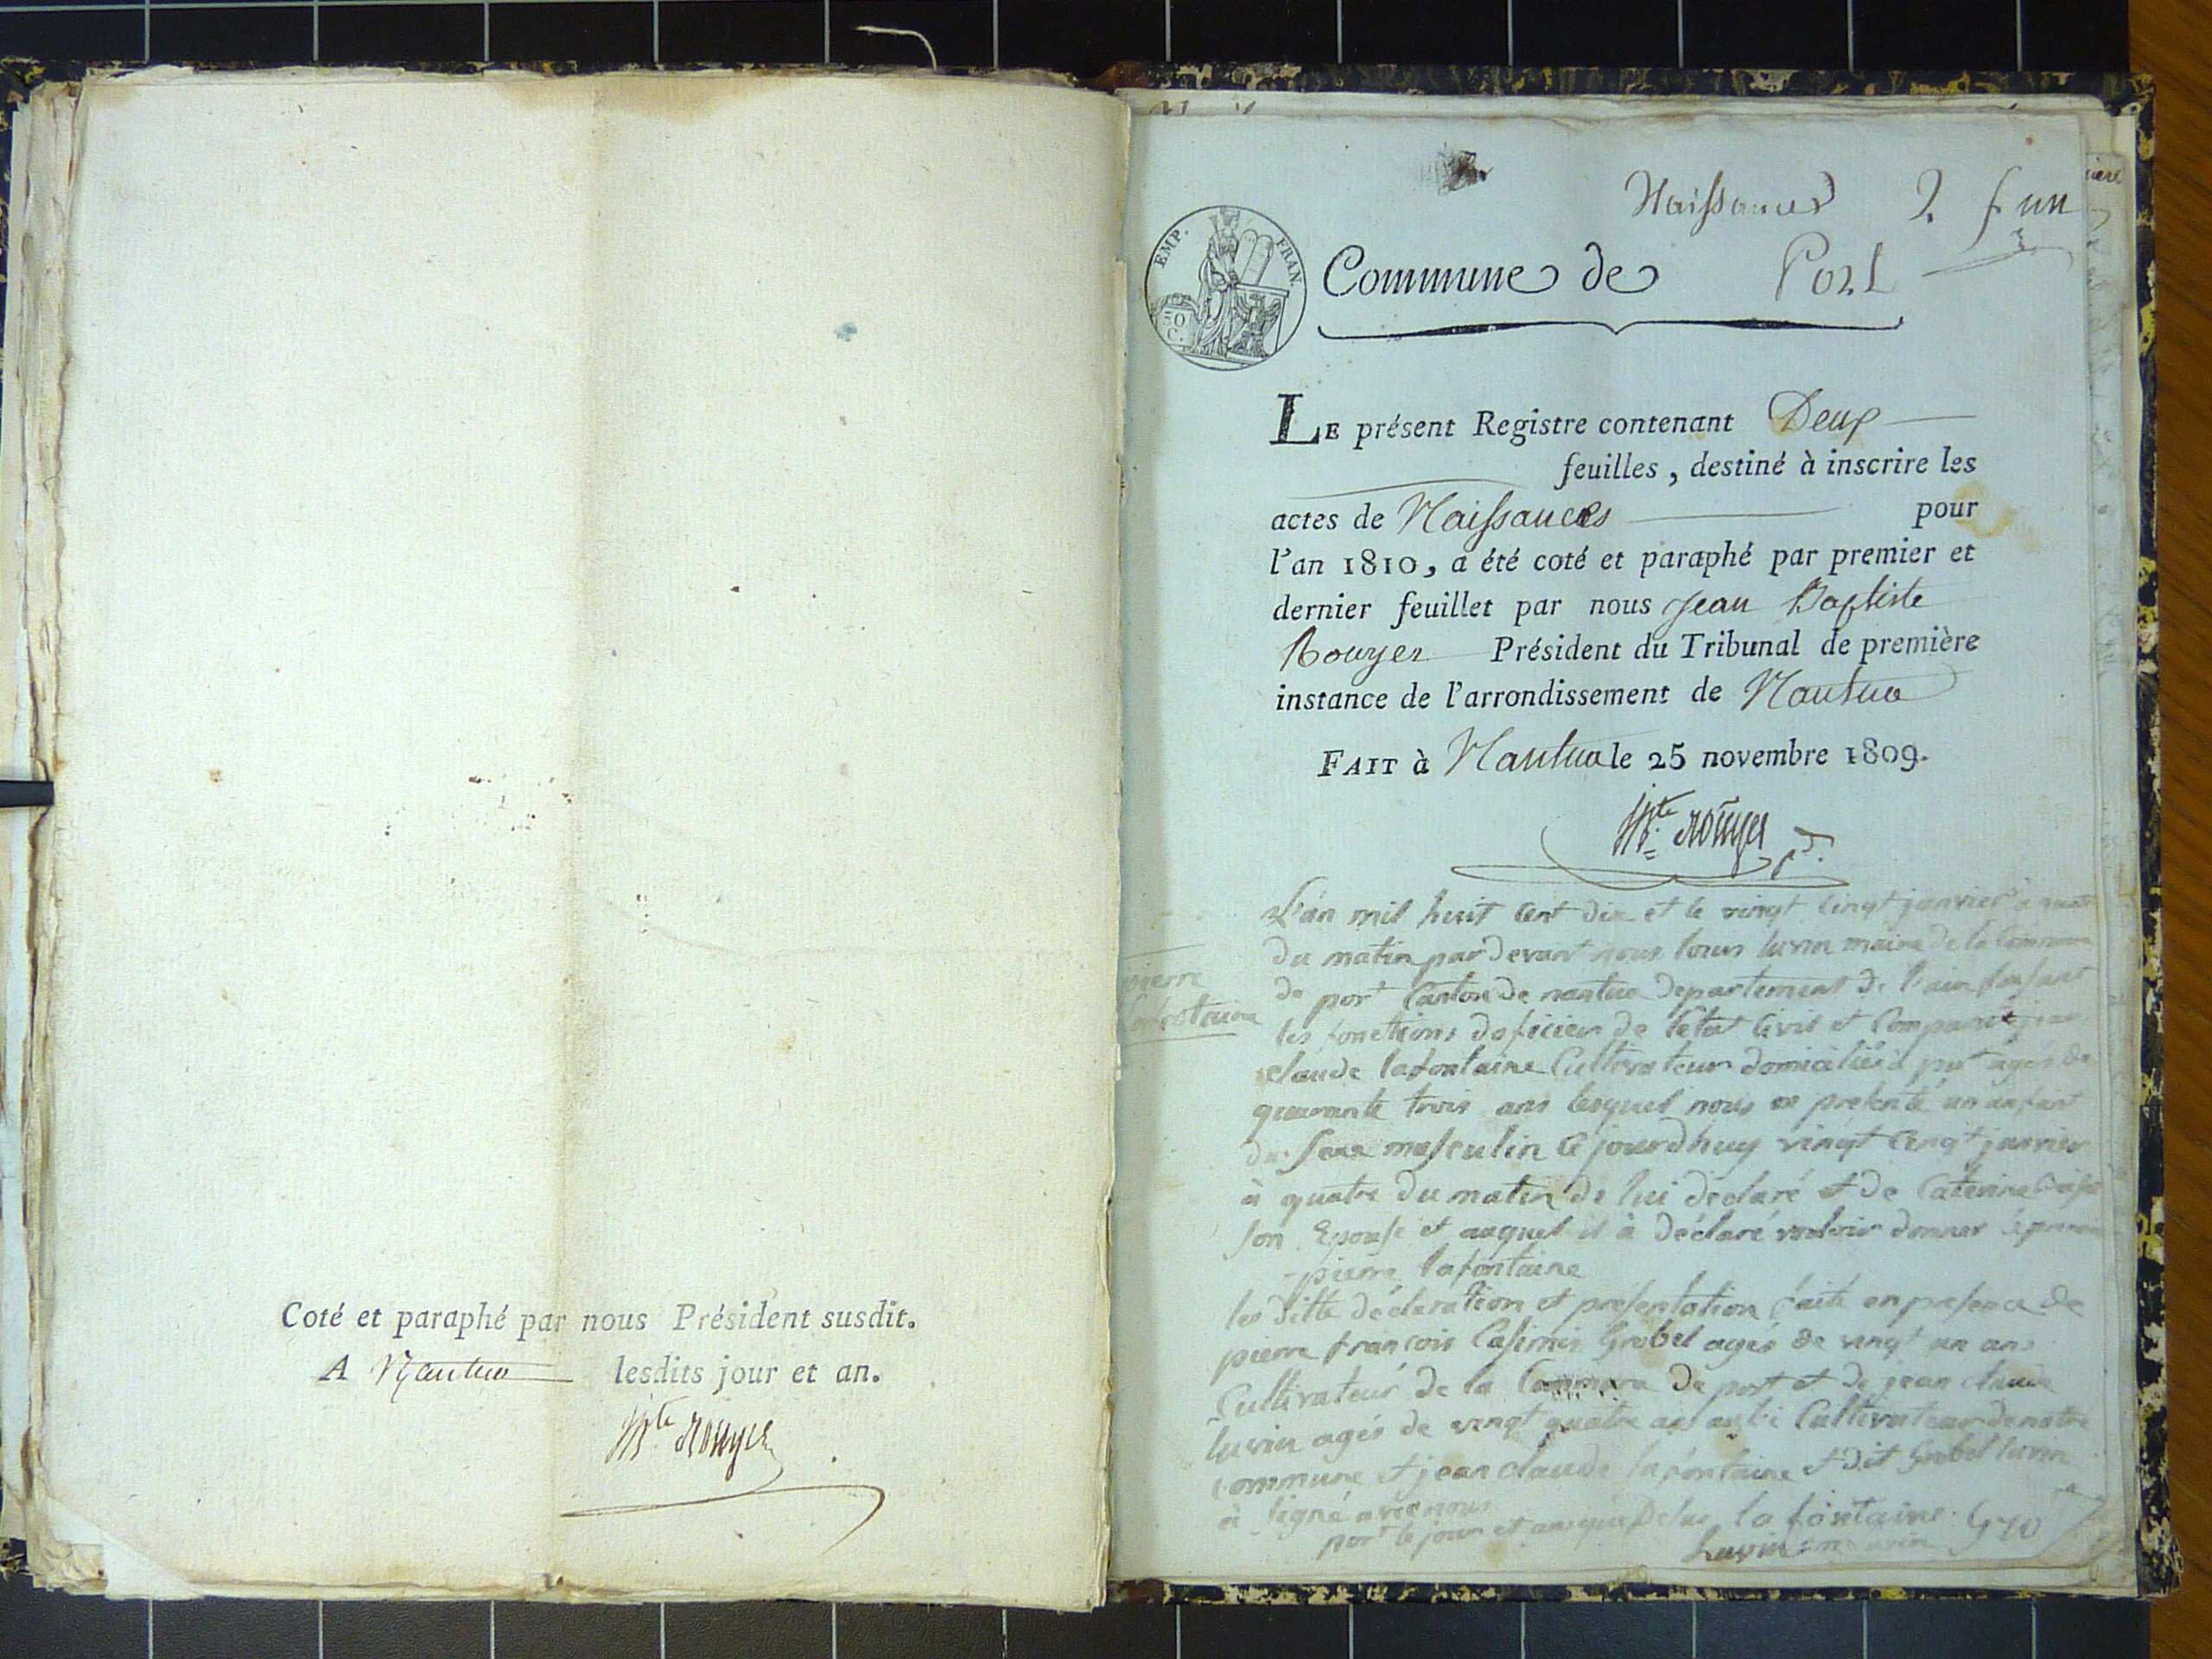 Coté et paraphé par nous Président susdit.
A Nantua lesdits jour et an.
JBte Rouyer
Naissances 2. f. un
EMP. FRAN.
50 C.
Commune de Port
LE présent Registre contenant Deux
feuilles, destiné à inscrire les
actes de Naissances pour
l'an 1810, a été coté et paraphé par premier et
dernier feuillet par nous Jean Baptiste
Rouyer Président du Tribunal de première
instance de l'arrondissement de Nantua
FAIT à Nantua le 25 novembre 1809.
JBte Rouyer
pierre
lafontaine
L'an mil huit cent dix et le vingt cinqt janvier à
du matin par devant nous luvin maire de la Commune
de port Canton de nantua departement de l'ain faisant
les fonctions doficier de letat Civil et
claude lafontaine Cultivateur domicilié à port agés de
quarante trois ans lesquel nous a presenté un anfant
du sexe masculin Ce jourdhuy vingt Cinqt janvier
à quatre du matin de lui déclaré et de Caterine
son Epouse et auquel il à déclaré vouloir donner le
pierre lafontaine
les ditte déclaration et presentation faite en presence de
pierre françois Casimir Grobel agés de vingt un ans
Cultivateur de la Commune de port et de jean claude
luvin agés de vingt quatre ans Cultivateur de notre
commune et jean claude lafontaine et dit Grobel luvin
à signé avec nous
port le jour et an que la fontaine
Luvin